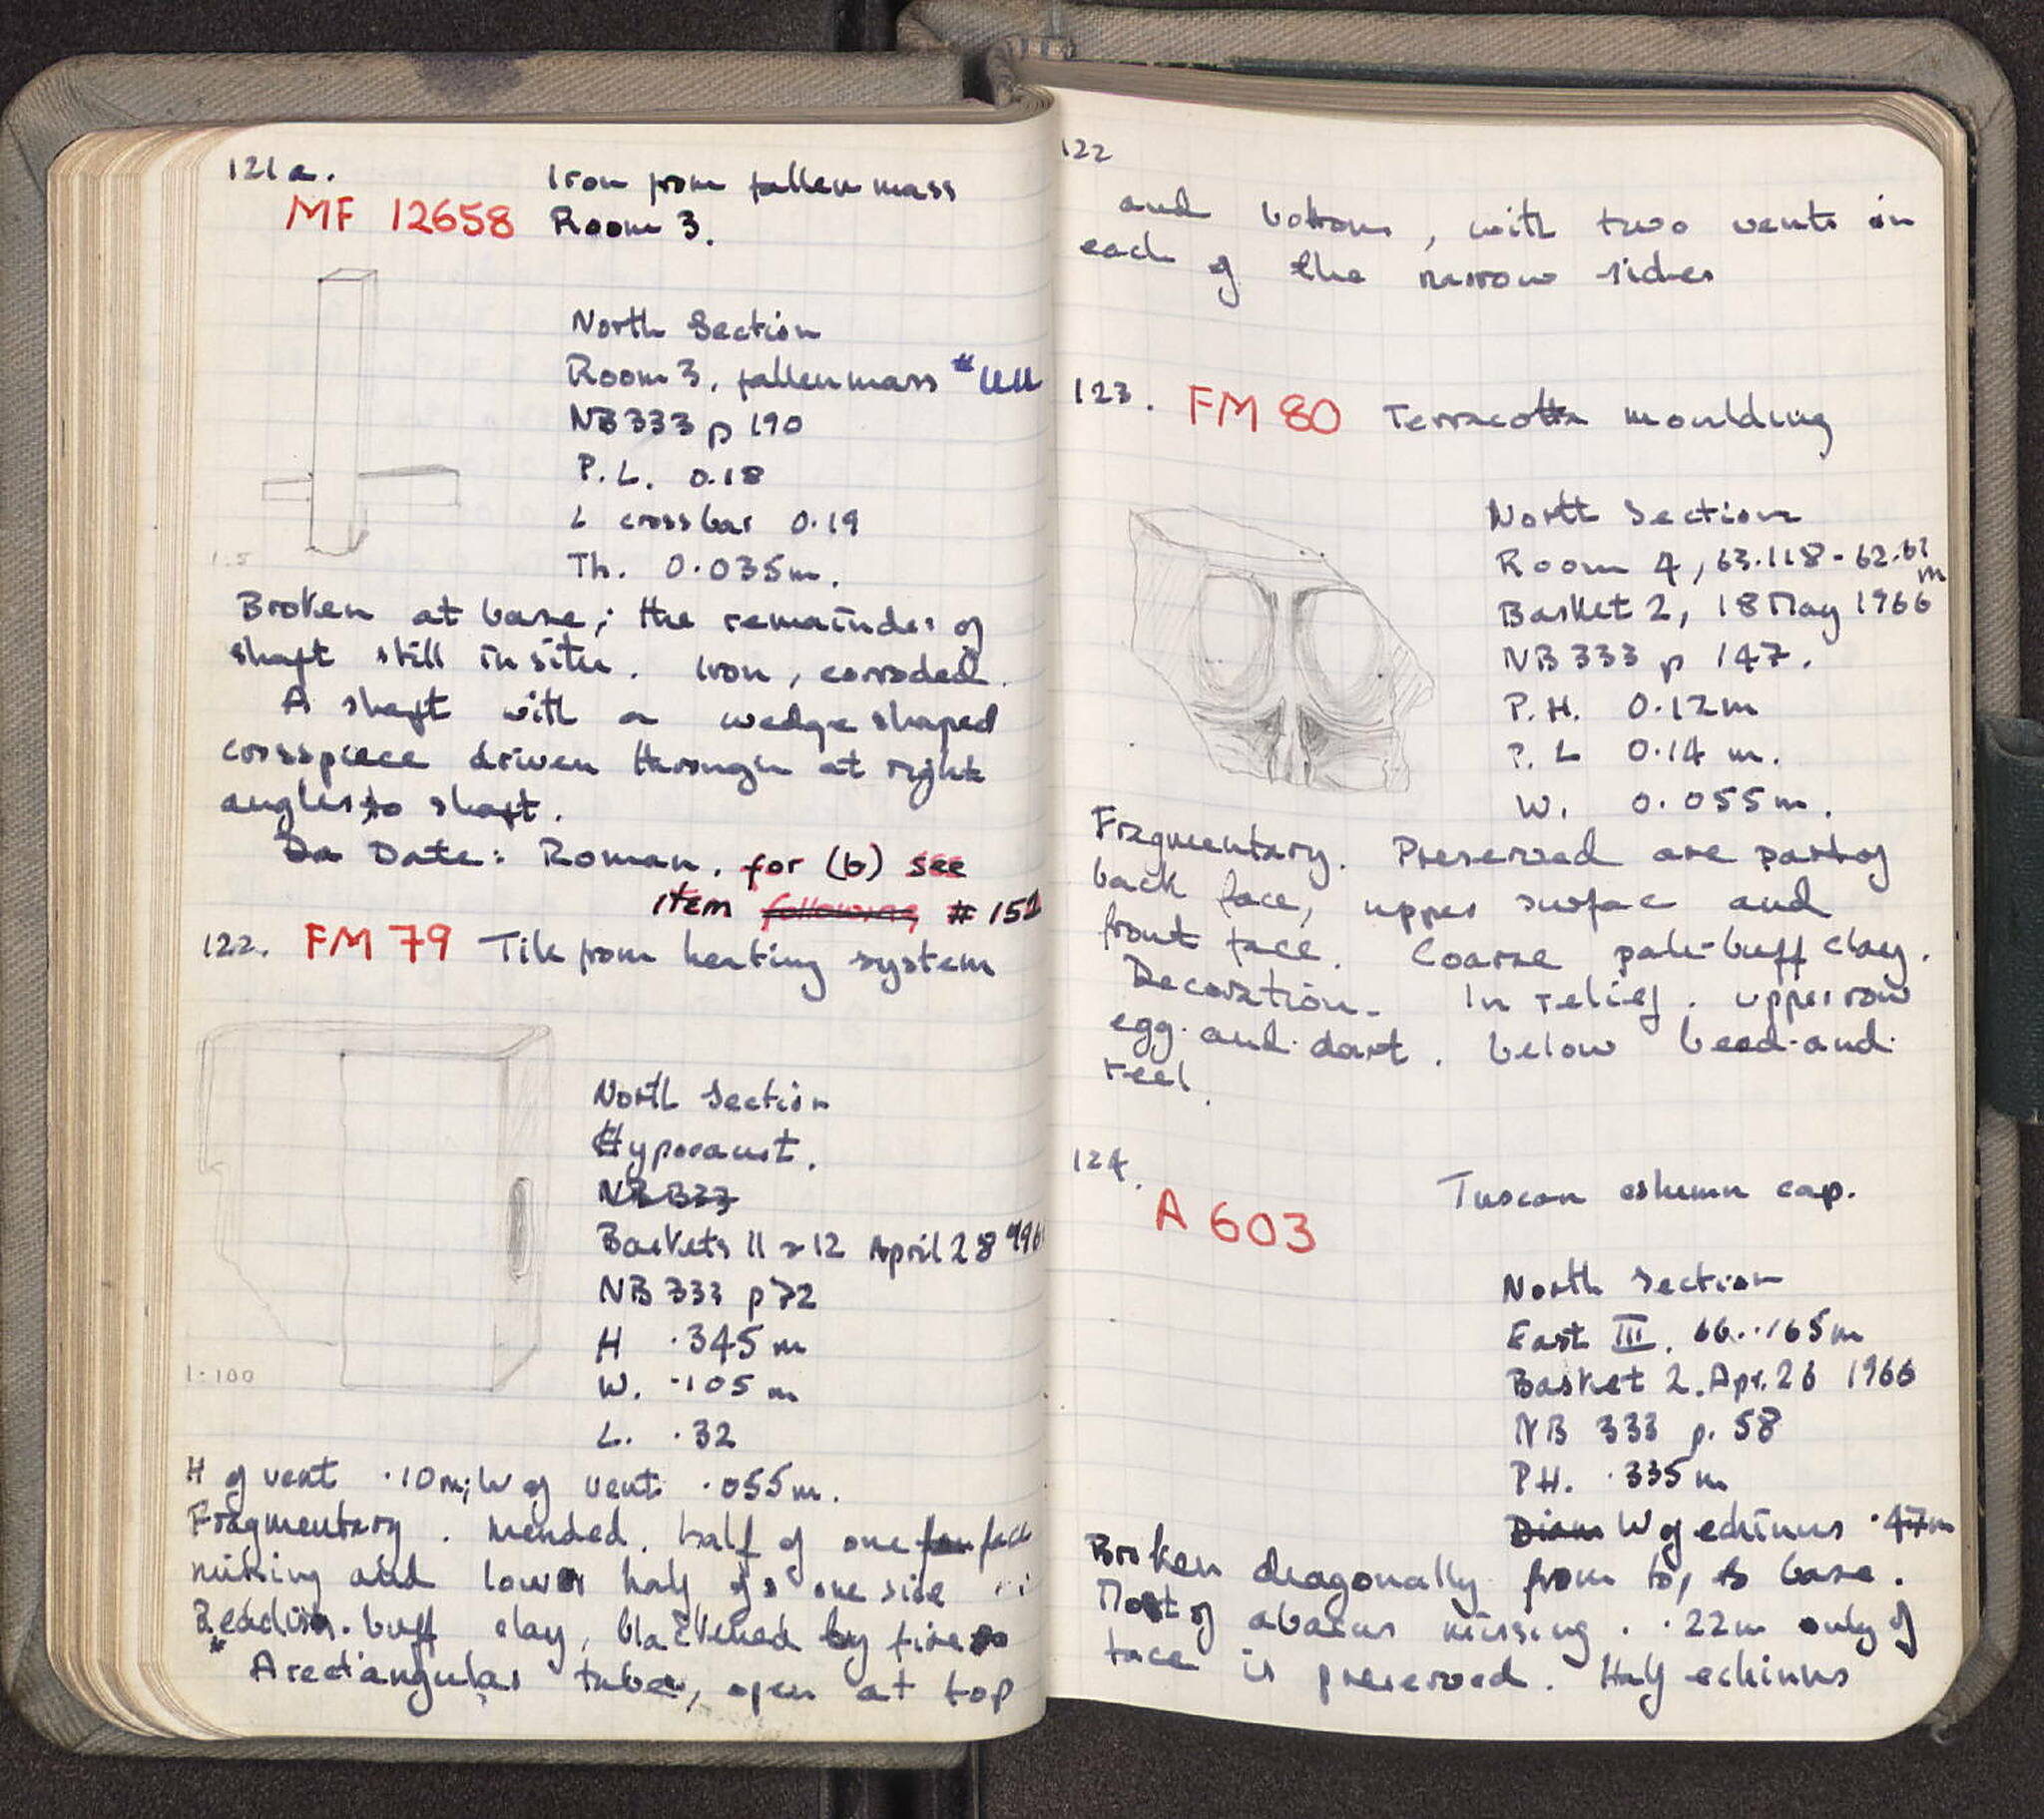 121a.
Iron from fallen mass
MF 12658 Room 3.
North Section
Room 3, fallen mass #
NB 333 p 190
P.L. 0.18
L crossbar 0.19
1:5
Th. 0.035m.
Broken at base; the remainder of
shaft still in situ. Iron, corroded.
A shaft with a wedge shaped
crosspiece driven through at right
angles to shaft.
Da Date: Roman. for (b) see
item following # 152
122. FM 79 Tile from heating system
North Section
Hypocaust.
NB B33
Baskets 11 & 12 April 28
NB 333 p 72
H .345 m
1:100
W. .105 m
L. .32
H of vent .10m; W of vent .055m.
Fragmentary. Mended. half of one face
missing and lower half of one side
Reddish-buff clay, blackened by fire
* A rectangular tube, open at top
122
and bottom, with two vents in
each of the narrow sides
123. FM 80 Terracotta moulding
North Section
Room 4, 63.118-62.61
m
Basket 2, 18 May 1966
NB 333 p 147.
P.H. 0.12m
P.L 0.14 m.
W. 0.055m.
Fragmentary. Preserved are part of
back face, upper surface and
front face. Coarse pale-buff clay.
Decoration. In relief. upper row
egg-and-dart. below bead-and-
reel.
124.
Tuscan column cap.
A 603
North Section
East III. 66..165m
Basket 2. Apr. 26 1966
NB 333 p. 58
P H. .335m
Diam W of echinus .47m
Broken diagonally from top to base.
Most of abacus missing. .22m only of
face is preserved. Half echinus